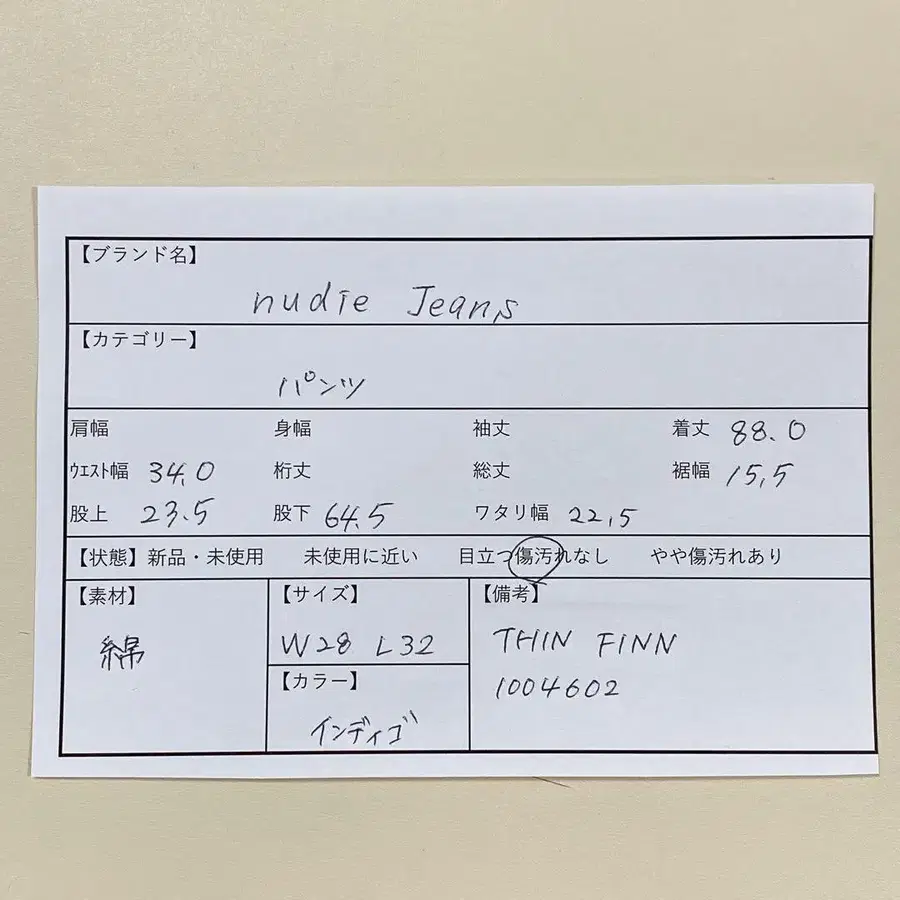 【ブランド名】
nudie Jeans
【カテゴリー】
パンツ
肩幅 身幅 袖丈 着丈 88.0
ウエスト幅 34.0 裄丈 総丈 裾幅 15,5
股上 23.5 股下 64.5 ワタリ幅 22,5
【状態】新品・未使用 未使用に近い 目立つ傷汚れなし やや傷汚れあり
【素材】
綿
【サイズ】
W28 L32
【カラー】
インディゴ
【備考】
THIN FINN
1004602